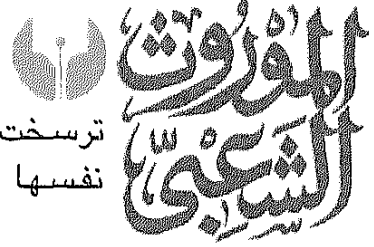 الموروث
الشعبي
ترسخت
نفسها